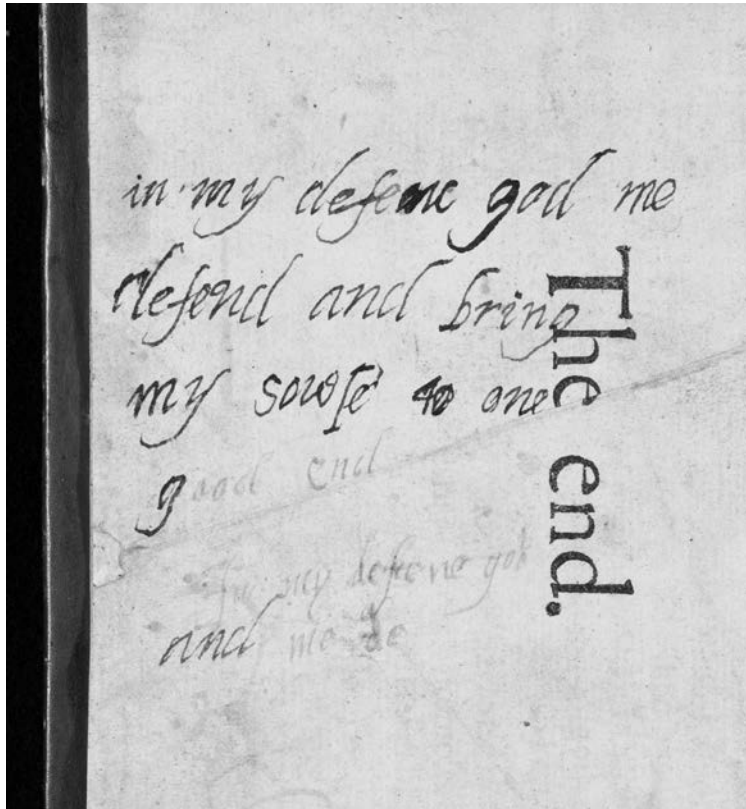 in my defenc god me
defend and bring
my sowle to ane
good end
In my defenc god
and me de
The end.